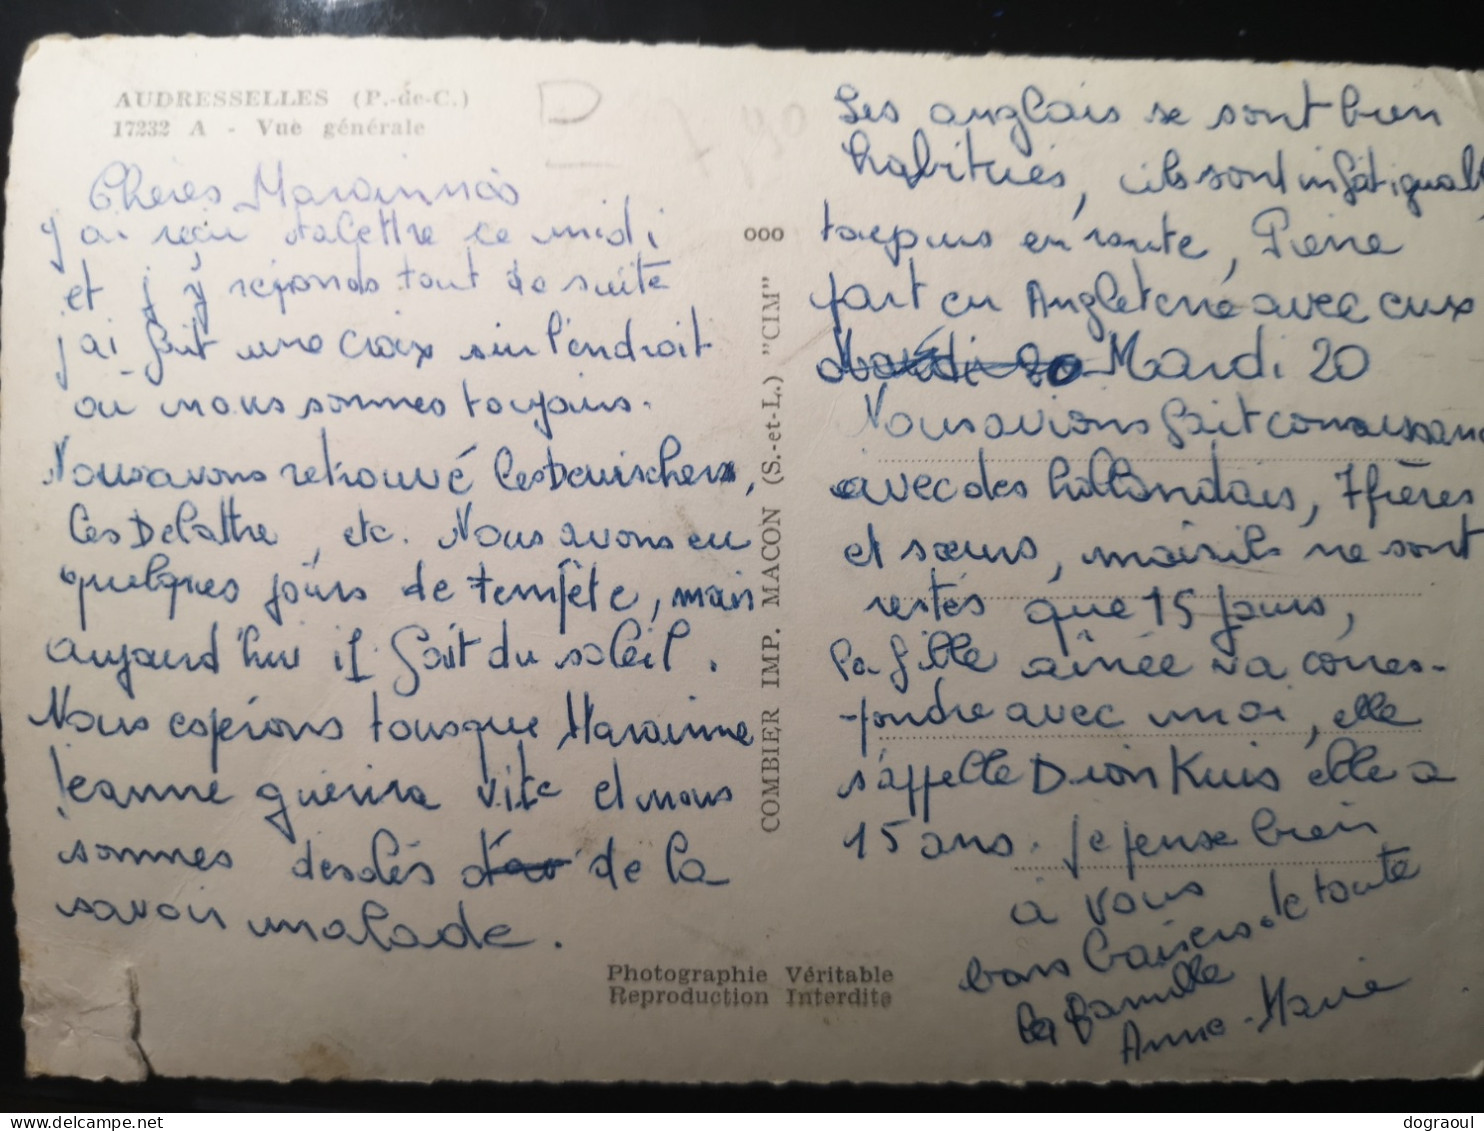 AUDRESSELLES (P.-de-C.)
17232 A - Vue générale
D
Chères Marainnes
j'ai reçu ta lettre ce midi
et j'y réponds tout de suite
j'ai fait une croix sur l'endroit
où nous sommes toujours.
Nous avons retrouvé les
les Delattre, etc. Nous avons eu
quelques jours de tempête, mais
aujourd'hui il fait du soleil.
Nous espérons tous que Marainne
Jeanne guérira vite et nous
sommes desolés de la
savoir malade.
COMBIER IMP. MACON (S.-et-L.) "CIM" ooo
Photographie Véritable
Reproduction Interdite
Les anglais se sont bien
habitués, ils sont infatiguabl
toujours en route, Pierre
part en Angleterre avec eux
Mardi 20
Nous avions fait connaissanc
avec des hollandais, 7 frères
et sœurs, mais ils ne sont
restés que 15 jours,
la fille aînée va corres-
-pondre avec moi, elle
s'appelle Dion Kuis elle a
15 ans. je pense bien
à vous
bons baisers de toute
la famille
Anne-Marie
dograoul